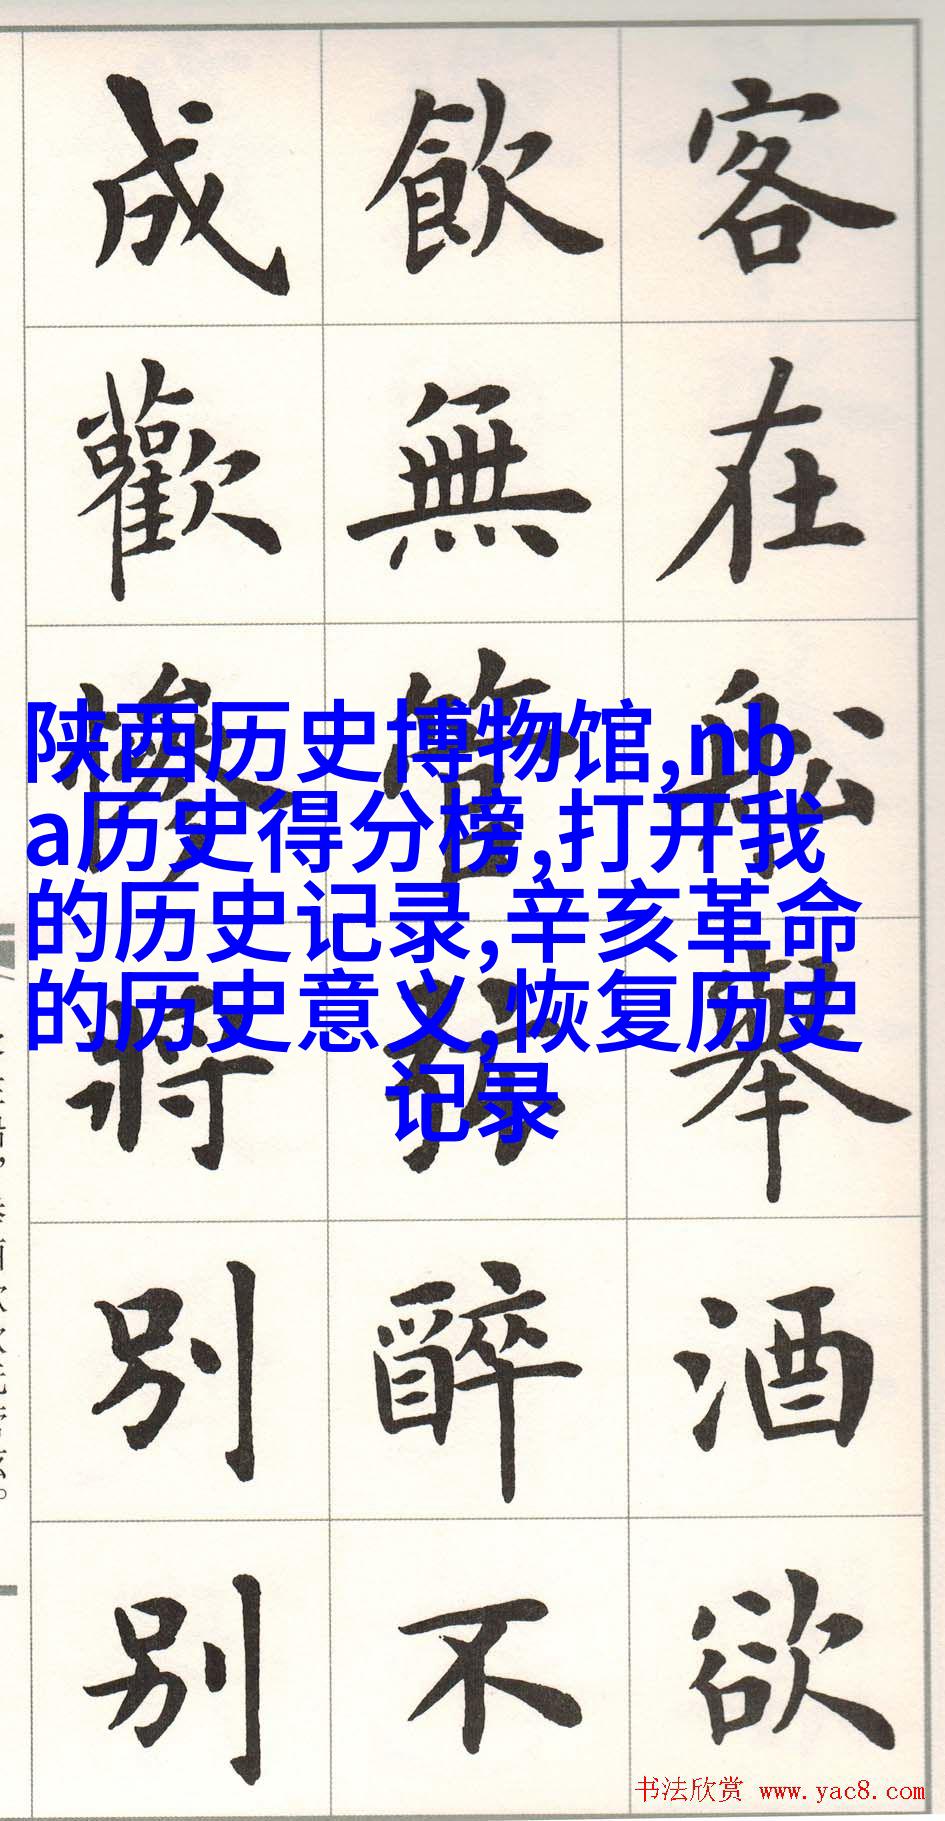 客在舩舉酒欲
飲無管醉不
成歡慘將別別
陕西历史博物馆,nb
a历史得分榜,打开我
的历史记录,辛亥革命
的历史意义,恢复历史
记录
书法欣赏 www.yac8.com